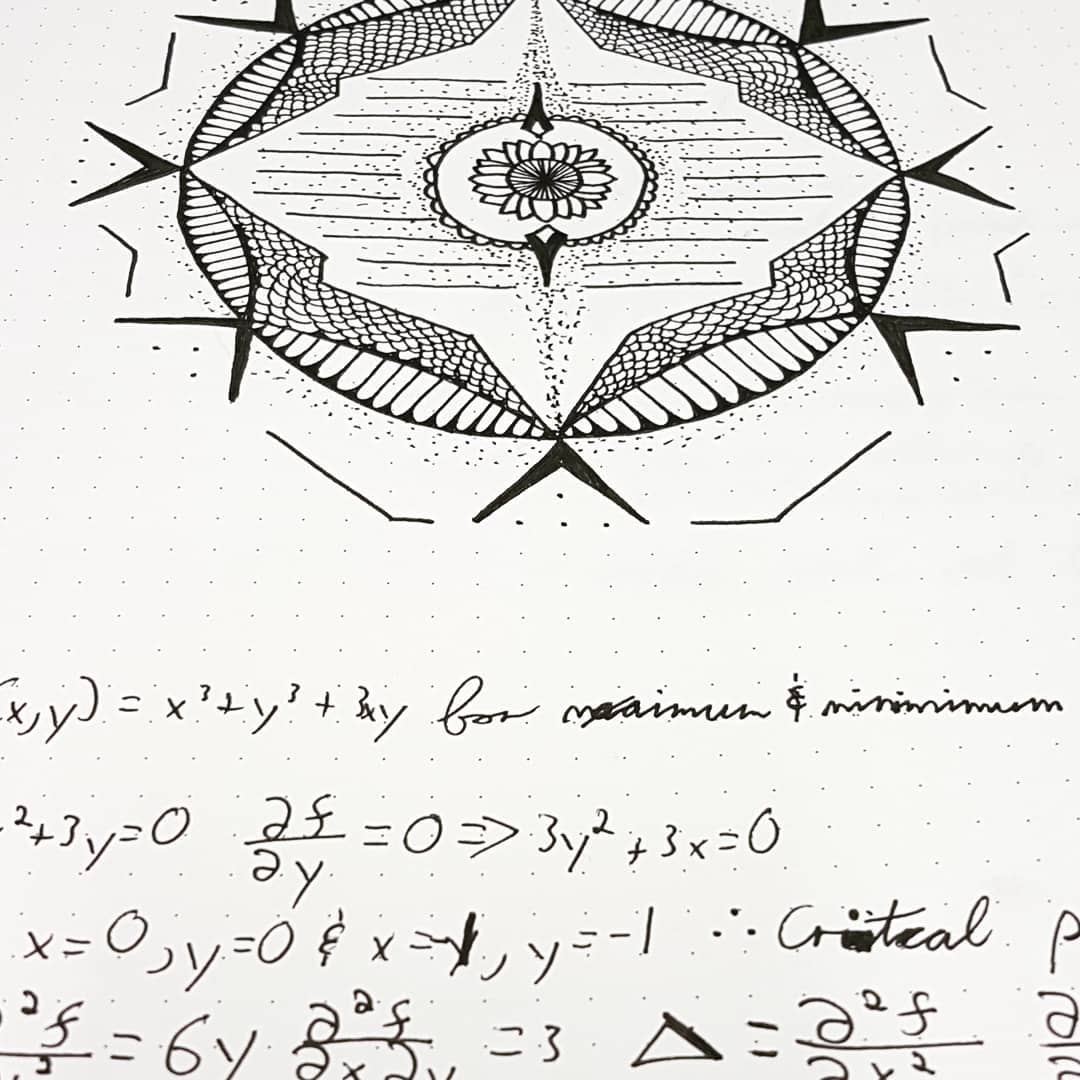 (x,y) = x³+y³ + 3xy for maximum & minimimum
²+3y=0 ∂f/∂y = 0 ⇒ 3y² + 3x = 0
x=0, y=0 & x=-1, y=-1 ∴ Critcal P
²f/² = 6y ∂²f/∂x∂y = 3 Δ = ∂²f/∂x² ∂